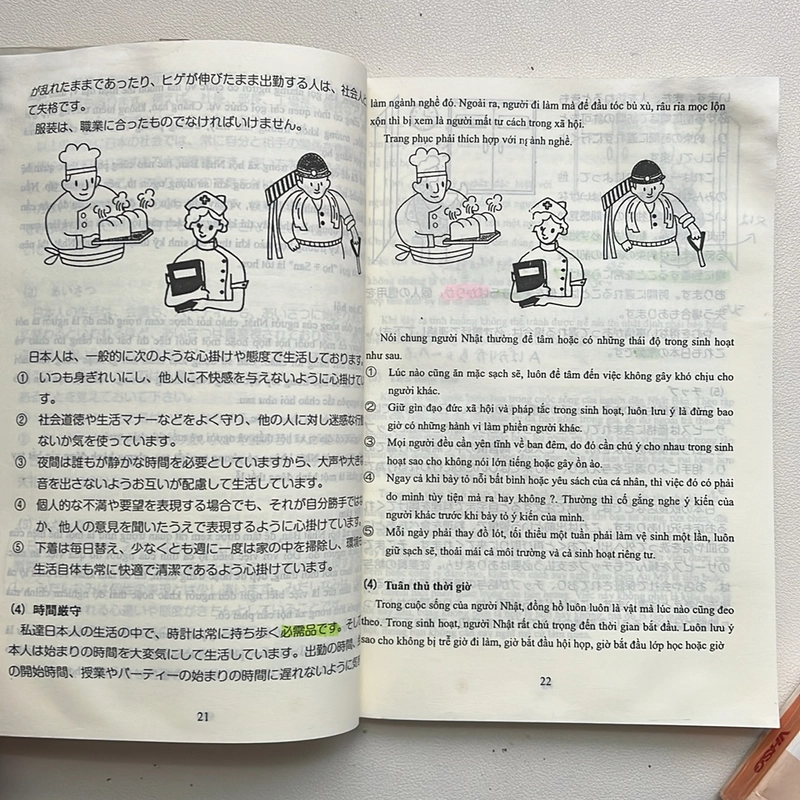 が乱れたままであったり、ヒゲが伸びたまま出勤する人は、社会人と
て失格です。
服装は、職業に合ったものでなければいけません。
日本人は、一般的に次のような心掛けや態度で生活しております。
① いつも身ぎれいにし、他人に不快感を与えないように心掛けて
す。
② 社会道徳や生活マナーなどをよく守り、他の人に対し迷惑な行
ないか気を使っています。
③ 夜間は誰もが静かな時間を必要としていますから、大声や大き
音を出さないようお互いが配慮して生活しています。
④ 個人的な不満や要望を表現する場合でも、それが自分勝手では
か、他人の意見を聞いたうえで表現するように心掛けています。
⑤ 下着は毎日替え、少なくとも週に一度は家の中を掃除し、環境
生活自体も常に快適で清潔であるよう心掛けています。
(4) 時間厳守
私達日本人の生活の中で、時計は常に持ち歩く必需品です。そし
本人は始まりの時間を大変気にして生活しています。出勤の時間、
の開始時間、授業やパーティーの始まりの時間に遅れないように
21
làm ngành nghề đó. Ngoài ra, người đi làm mà để đầu tóc bù xù, râu ria mọc lộn
xộn thì bị xem là người mất tư cách trong xã hội.
Trang phục phải thích hợp với ngành nghề.
Nói chung người Nhật thường để tâm hoặc có những thái độ trong sinh hoạt
như sau.
① Lúc nào cũng ăn mặc sạch sẽ, luôn để tâm đến việc không gây khó chịu cho
người khác.
② Giữ gìn đạo đức xã hội và pháp tắc trong sinh hoạt, luôn lưu ý là đừng bao
giờ có những hành vi làm phiền người khác.
③ Mọi người đều cần yên tĩnh về ban đêm, do đó cần chú ý cho nhau trong sinh
hoạt sao cho không nói lớn tiếng hoặc gây ồn ào.
④ Ngay cả khi bày tỏ nỗi bất bình hoặc yêu sách của cá nhân, thì việc đó có phải
do mình tùy tiện mà ra hay không ?. Thường thì cố gắng nghe ý kiến của
người khác trước khi bày tỏ ý kiến của mình.
⑤ Mỗi ngày phải thay đồ lót, tối thiểu một tuần phải làm vệ sinh một lần, luôn
giữ sạch sẽ, thoải mái cả môi trường và cả sinh hoạt riêng tư.
(4) Tuân thủ thời giờ
Trong cuộc sống của người Nhật, đồng hồ luôn luôn là vật mà lúc nào cũng đeo
theo. Trong sinh hoạt, người Nhật rất chú trọng đến thời gian bắt đầu. Luôn lưu ý
sao cho không bị trễ giờ đi làm, giờ bắt đầu hội họp, giờ bắt đầu lớp học hoặc giờ
22